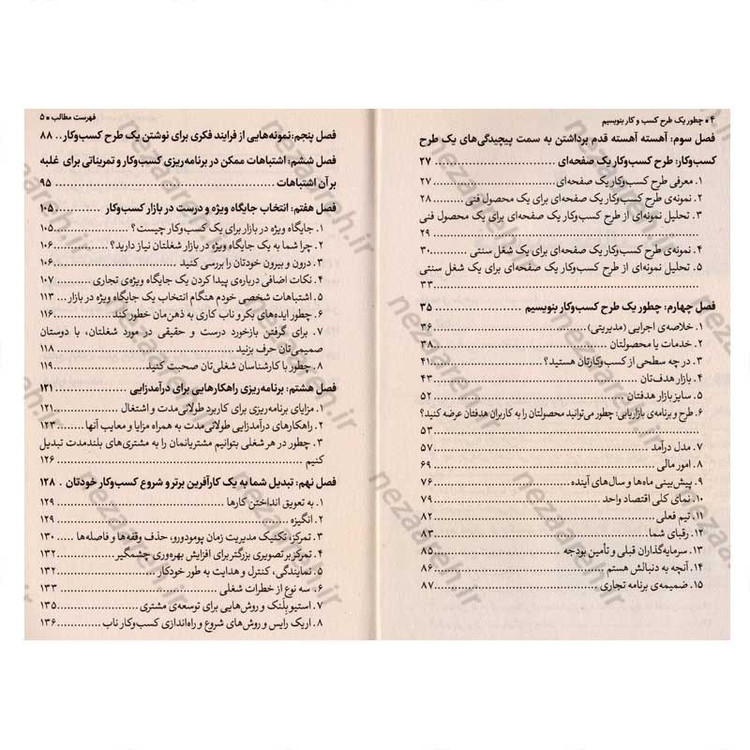 ۴ • چطور یک طرح کسب و کار بنویسیم
فصل سوم: آهسته آهسته قدم برداشتن به سمت پیچیدگی‌های یک طرح
کسب‌وکار: طرح کسب‌وکار یک صفحه‌ای ۲۷
۱. معرفی طرح کسب‌وکار یک صفحه‌ای ۲۷
۲. نمونه‌ی طرح کسب‌وکار یک صفحه‌ای برای یک محصول فنی ۲۸
۳. تحلیل نمونه‌ای از طرح کسب‌وکار یک صفحه‌ای برای یک محصول فنی
۲۹
۴. نمونه‌ی طرح کسب‌وکار یک صفحه‌ای برای یک شغل سنتی ۳۰
۵. تحلیل نمونه‌ای از طرح کسب‌وکار یک صفحه‌ای برای یک شغل سنتی
۳۳
فصل چهارم: چطور یک طرح کسب‌وکار بنویسیم ۳۵
۱. خلاصه‌ی اجرایی (مدیریتی) ۳۶
۲. خدمات یا محصولتان ۳۸
۳. در چه سطحی از کسب‌وکارتان هستید؟ ۴۱
۴. بازار هدف‌تان ۴۳
۵. سایز بازار هدفتان ۵۲
۶. طرح و برنامه‌ی بازاریابی: چطور می‌توانید محصولتان را به کاربران هدفتان عرضه کنید؟
۵۳
۷. مدل درآمد ۵۷
۸. امور مالی ۶۹
۹. پیش‌بینی ماه‌ها و سال‌های آینده ۷۶
۱۰. نمای کلی اقتصاد واحد ۷۹
۱۱. تیم فعلی ۸۲
۱۲. رقبای شما ۸۳
۱۳. سرمایه‌گذاران قبلی و تأمین بودجه ۸۵
۱۴. آنچه به دنبالش هستم ۸۶
۱۵. ضمیمه‌ی برنامه تجاری ۸۷
فهرست مطالب • ۵
فصل پنجم: نمونه‌هایی از فرایند فکری برای نوشتن یک طرح کسب‌وکار .. ۸۸
فصل ششم: اشتباهات ممکن در برنامه‌ریزی کسب‌وکار و تمریناتی برای غلبه
بر آن اشتباهات ۹۵
فصل هفتم: انتخاب جایگاه ویژه و درست در بازار کسب‌وکار ۱۰۵
۱. جایگاه ویژه در بازار برای یک کسب‌وکار چیست؟ ۱۰۵
۲. چرا شما به یک جایگاه ویژه در بازار شغلتان نیاز دارید؟ ۱۰۶
۳. درون و بیرون خودتان را بررسی کنید ۱۰۶
۴. نکات اضافی درباره‌ی پیدا کردن یک جایگاه ویژه‌ی تجاری ۱۰۷
۵. اشتباهات شخصی خودم هنگام انتخاب یک جایگاه ویژه در بازار ۱۱۳
۶. چطور ایده‌های بکر و ناب کاری به ذهن‌مان خطور کند ۱۱۶
۷. برای گرفتن بازخورد درست و حقیقی در مورد شغلتان، با دوستان
صمیمی‌تان حرف بزنید ۱۱۸
۸. چطور با کارشناسان شغلی‌تان صحبت کنید ۱۱۹
فصل هشتم: برنامه‌ریزی راهکارهایی برای درآمدزایی ۱۲۱
۱. مزایای برنامه‌ریزی برای کاربرد طولانی‌مدت و اشتغال ۱۲۱
۲. راهکارهای درآمدزایی طولانی‌مدت به همراه مزایا و معایب آنها ۱۲۳
۳. چطور در هر شغلی بتوانیم مشتریانمان را به مشتری‌های بلندمدت تبدیل
کنیم ۱۲۶
فصل نهم: تبدیل شما به یک کارآفرین برتر و شروع کسب‌وکار خودتان . ۱۲۸
۱. به تعویق انداختن کارها ۱۲۹
۲. انگیزه ۱۲۹
۳. تمرکز، تکنیک مدیریت زمان پومودورو، حذف وقفه‌ها و فاصله‌ها ۱۳۰
۴. تمرکز بر تصویری بزرگتر برای افزایش بهره‌وری چشمگیر ۱۳۲
۵. نمایندگی، کنترل و هدایت به طور خودکار ۱۳۲
۶. سه نوع از خطرات شغلی ۱۳۳
۷. استیو بلنک و روش‌هایی برای توسعه‌ی مشتری ۱۳۵
۸. اریک رایس و روش‌های شروع و راه‌اندازی کسب‌وکار ناب ۱۳۶
nezaareh.ir